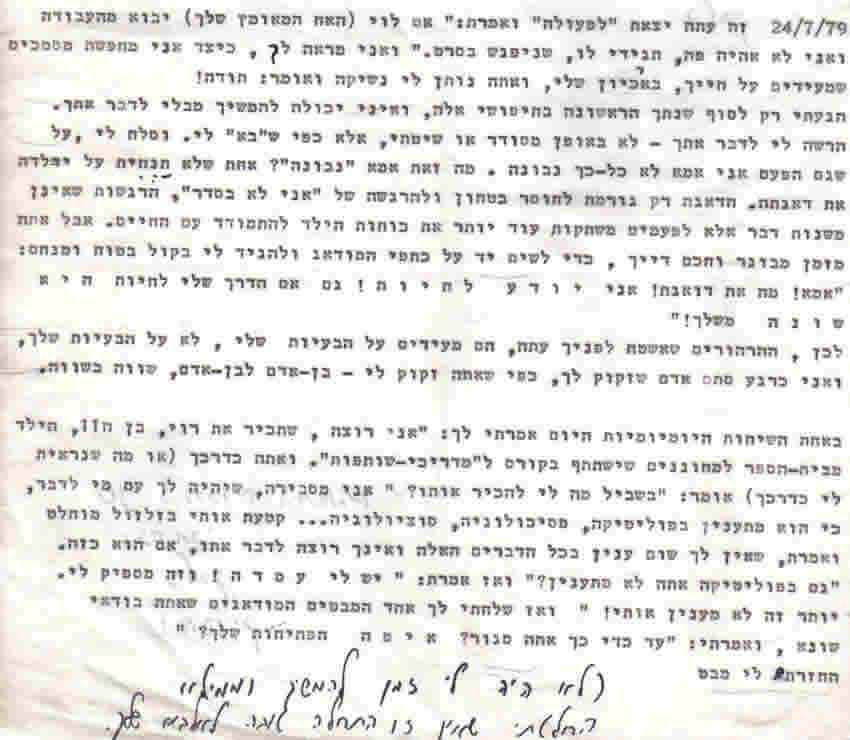 24/7/79 זה עתה יצאת "לפעולה" ואמרת: "אם לוי (האח המאומץ שלך) יבוא מהעבודה
ואני לא אהיה פה, תגידי לו, שניפגש בסרט." ואני מראה לך, כיצד אני מחפשת מסמכים
שמעידים על חייך, בארכיון שלי, ואתה נותן לי נשיקה ואומר: תודה!
הגעתי רק לסוף שנתך הראשונה בחיפושי אלה, ואיני יכולה להמשיך מבלי לדבר אתך.
הרשה לי לדבר אתך - לא באופן מסודר או שיטתי, אלא כפי ש"בא" לי. וסלח לי, על
שגם הפעם אני אמא לא כל-כך נבונה. מה זאת אמא "נבונה"? אחת שלא תנחית על ילדה
את דאגתה. הדאגה רק גורמת לחוסר בטחון ולהרגשה של "אני לא בסדר", הרגשות שאינן
משנות דבר אלא לפעמים משתקות עוד יותר את כוחות הילד להתמודד עם החיים. אבל אתה
מזמן מבוגר וחכם דייך, כדי לשים יד על כתפי המודאג ולהגיד לי בקול בטוח ומנחם:
"אמא! מה את דואגת! אני י ו ד ע ל ח י ו ת ! גם אם הדרך שלי לחיות ה י א
ש ו נ ה משלך!"
לכן, ההרהורים שאשטח לפניך עתה, הם מעידים על הבעיות שלי, לא על הבעיות שלך,
ואני כרגע סתם אדם שזקוק לך, כפי שאתה זקוק לי - בן-אדם לבן-אדם, שווה בשווה.
באחת השיחות היומיומיות היום אמרתי לך: "אני רוצה, שתכיר את רוי, בן ה11, הילד
מבית-הספר למחוננים שישתתף בקורס ל"מדריכי-שותפות". ואתה כדרכך (או מה שנראית
לי כדרכך) אומר: "בשביל מה לי להכיר אותו?" אני מסבירה, שיהיה לך עם מי לדבר,
כי הוא מתענין בפוליטיקה, פסיכולוגיה, סוציולוגיה... קטעת אותי בזלזול מוחלט
ואמרת, שאין לך שום ענין בכל הדברים האלה ואינך רוצה לדבר אתו, אם הוא כזה.
"גם בפוליטיקה אתה לא מתענין?" ואז אמרת: "יש לי ע מ ד ה ! וזה מספיק לי.
יותר זה לא מענין אותי!" ואז שלחתי לך אחד המבטים המודאגים שאתה בודאי
שונא, ואמרתי: "עד כדי כך אתה סגור? א י פ ה הפתיחות שלך?"
החזרת לי מבט
(לא היה לי זמן להמשיך וממילא
החלטתי שאין זו התחלה טובה לאלבום שלך.